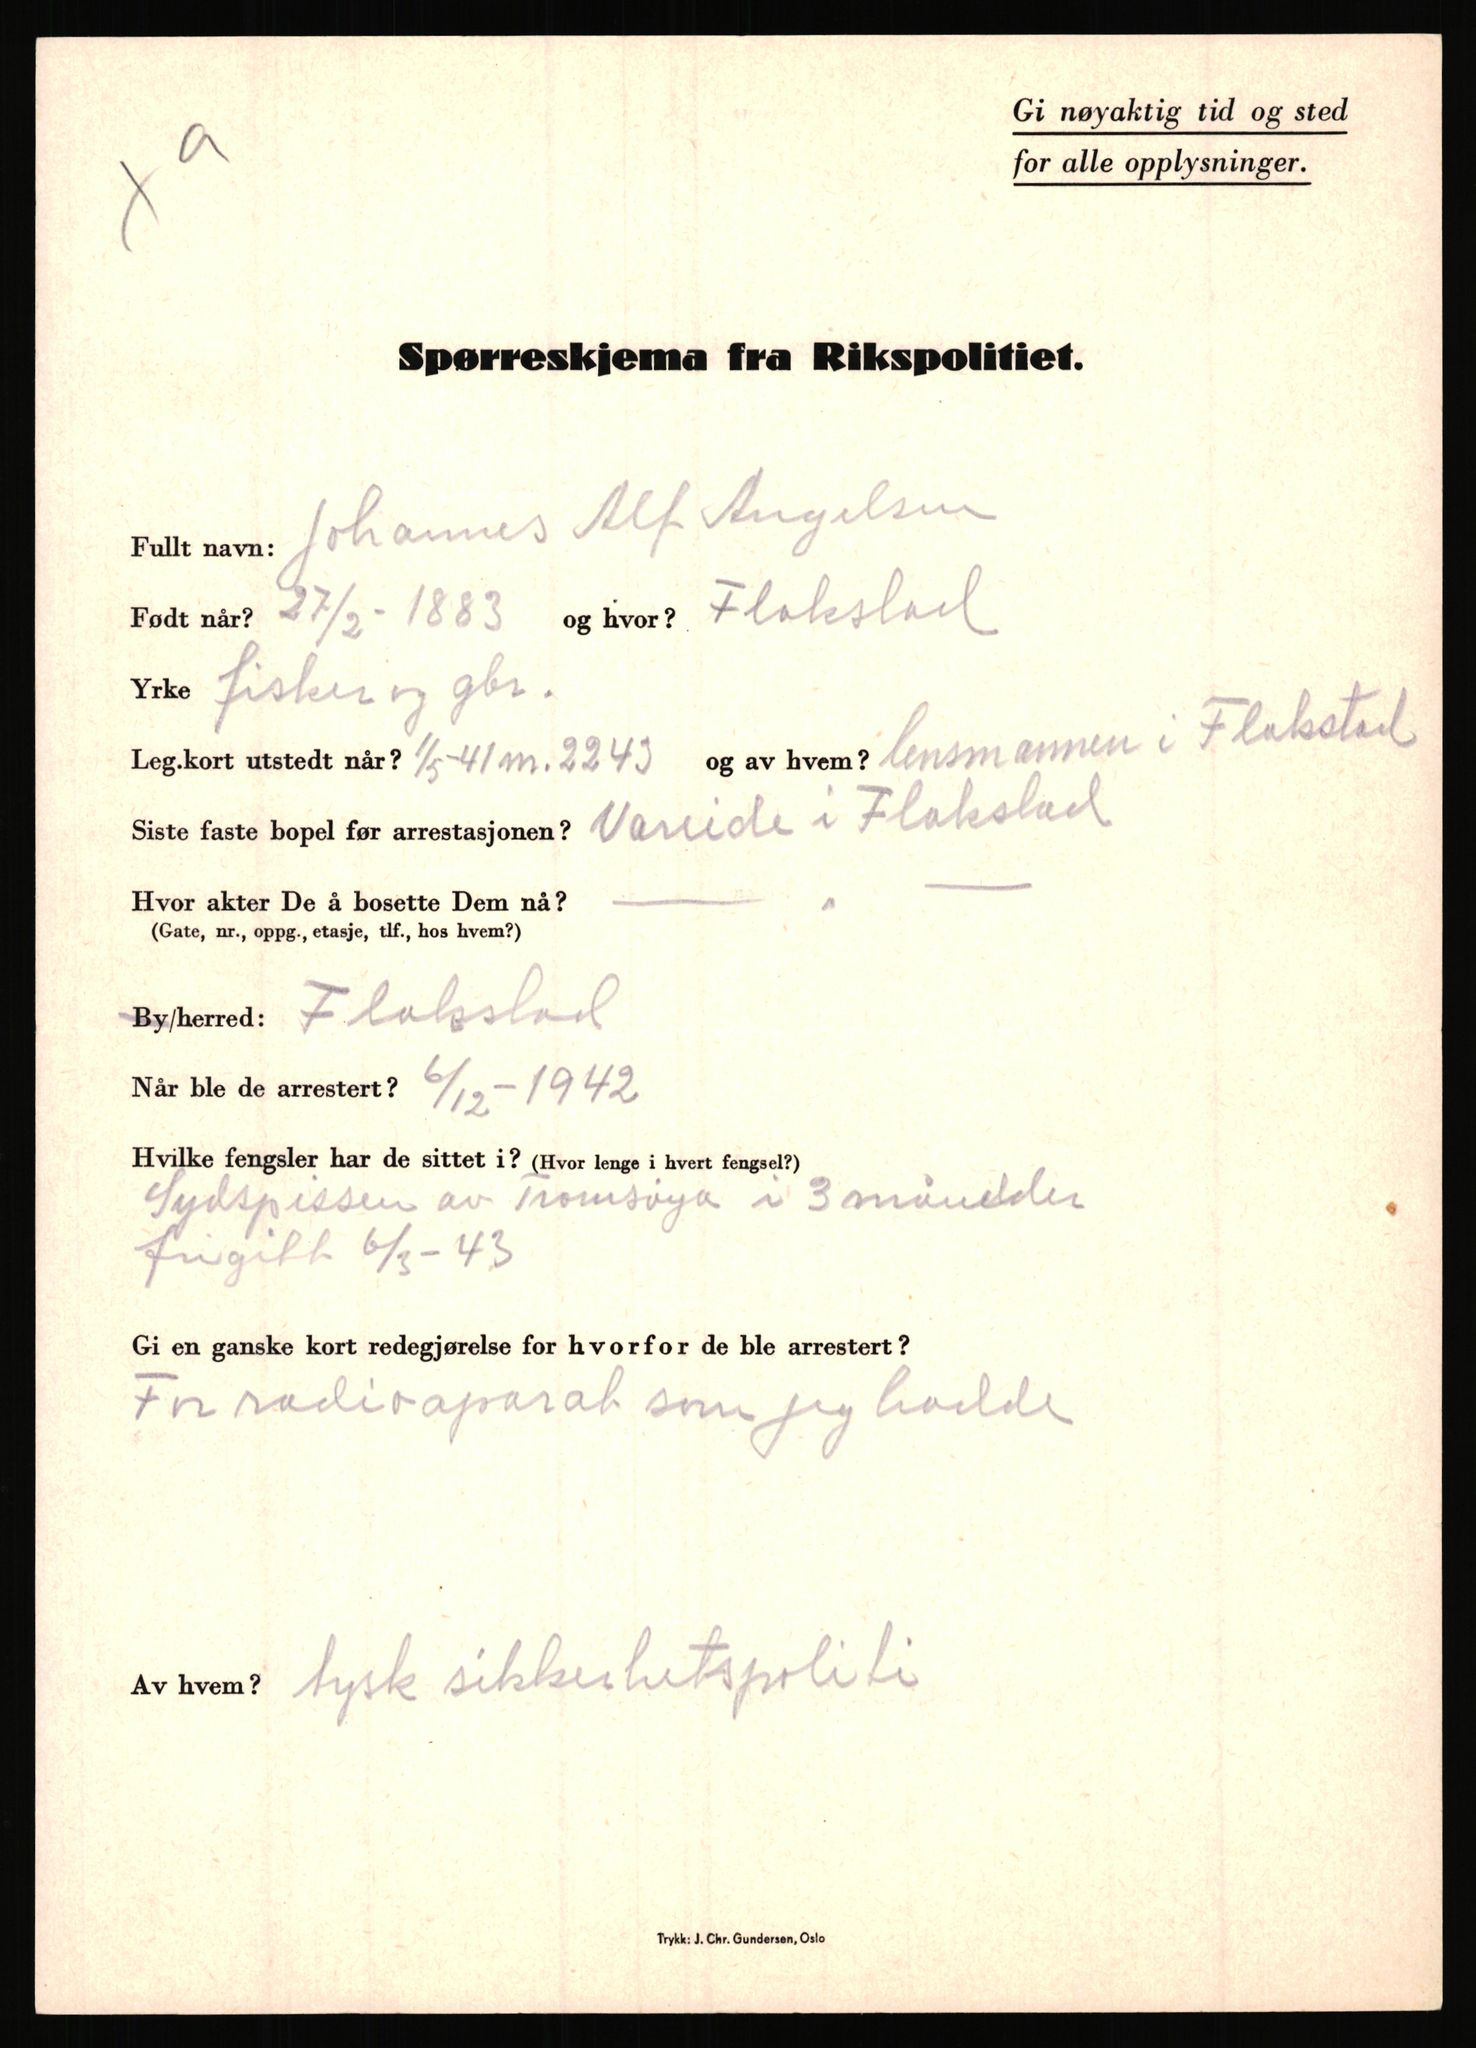 Gi nøyaktig tid og sted
for alle opplysninger.
x a
Spørreskjema fra Rikspolitiet.
Fullt navn: Johannes Alf Angelsen
Født når? 27/2 - 1883 og hvor? Flakstad
Yrke fisker og gbr.
Leg.kort utstedt når? 1/5-41 nr. 2243 og av hvem? lensmannen i Flakstad
Siste faste bopel før arrestasjonen? Vareide i Flakstad
Hvor akter De å bosette Dem nå? — " —
(Gate, nr., oppg., etasje, tlf., hos hvem?)
By/herred: Flakstad
Når ble de arrestert? 6/12 - 1942
Hvilke fengsler har de sittet i? (Hvor lenge i hvert fengsel?)
Sydspissen av Tromsøya i 3 måneder
frigitt 6/3 - 43
Gi en ganske kort redegjørelse for hvorfor de ble arrestert?
For radioaparat som jeg hadde
Av hvem? tysk sikkerhetspoliti
Trykk: J. Chr. Gundersen, Oslo